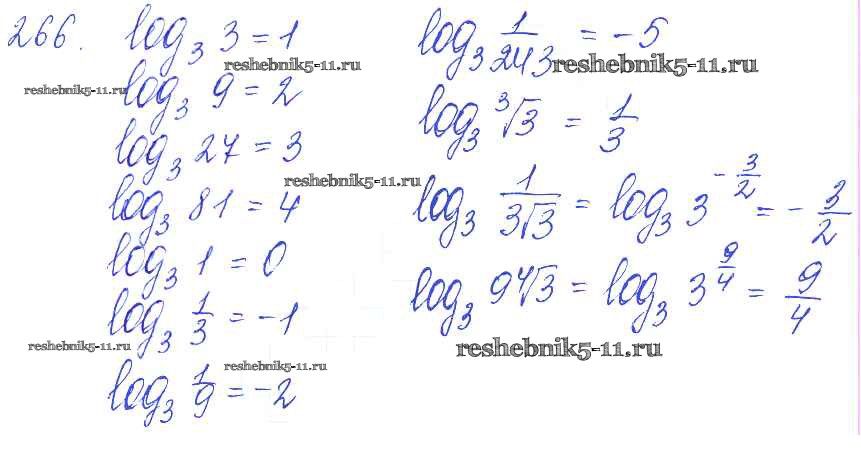 266. log₃ 3 = 1
reshebnik5-11.ru
reshebnik5-11.ru
log₃ 9 = 2
log₃ 27 = 3
reshebnik5-11.ru
log₃ 81 = 4
log₃ 1 = 0
log₃ 1/3 = -1
reshebnik5-11.ru
reshebnik5-11.ru
log₃ 1/9 = -2
log₃ 1/243 = -5
reshebnik5-11.ru
log₃ ³√3 = 1/3
log₃ 1/(3√3) = log₃ 3^(-3/2) = -3/2
log₃ 9⁴√3 = log₃ 3^(9/4) = 9/4
reshebnik5-11.ru